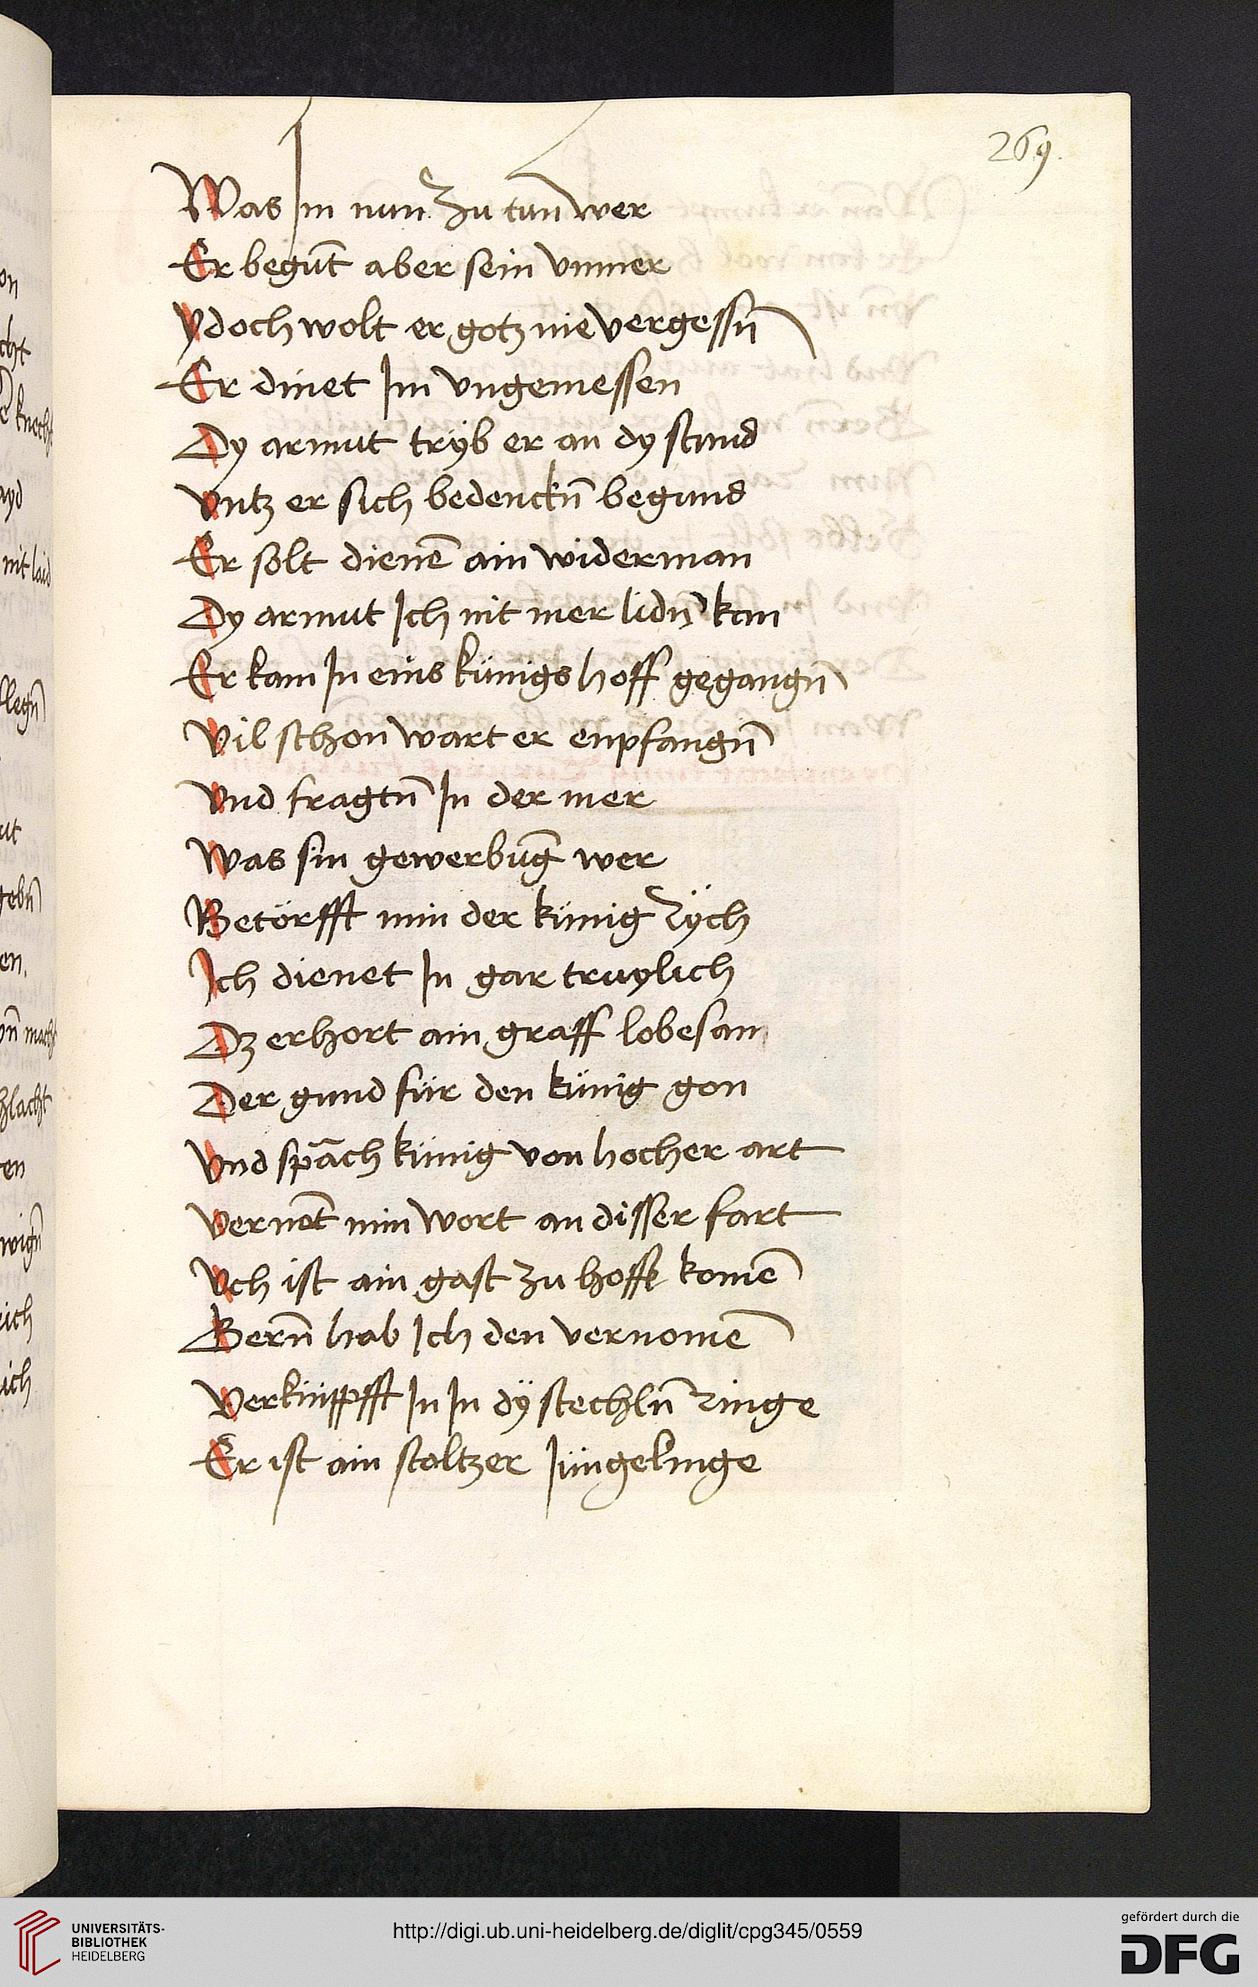 269.
Was Im nun zu tun wer
Er begūt aber sein vnmer
ydoch wolt er gotz nie vergessn̄
Er dinet Im vngemessen
Dy armut tryb er an dy stund
vntz er sich bedenckn̄ begund
Er solt dienē ain widerman
Dy armut Ich nit mer lidn̄ kan
Er kam In eins künigs hoff gegangn̄
Vil schon wart er enpfangn̄
vnd fragtn̄ In der mer
Was sin gewerbūg wer
Betörfft min der künig rÿch
Ich dienet In gar truylich
Dz erhort ain graff lobesam
Der gund für den künig gon
vnd sprach künig von hocher art
vernēt min wort an disser fart
Vch ist ain gast zu hoffe komē
Bern̄ hab Ich den vernomē
Verknüppfft In In dÿ stechln̄ ringe
Er ist ain stoltzer Jüngelinge
UNIVERSITÄTS-
BIBLIOTHEK
HEIDELBERG
http://digi.ub.uni-heidelberg.de/diglit/cpg345/0559
gefördert durch die
DFG